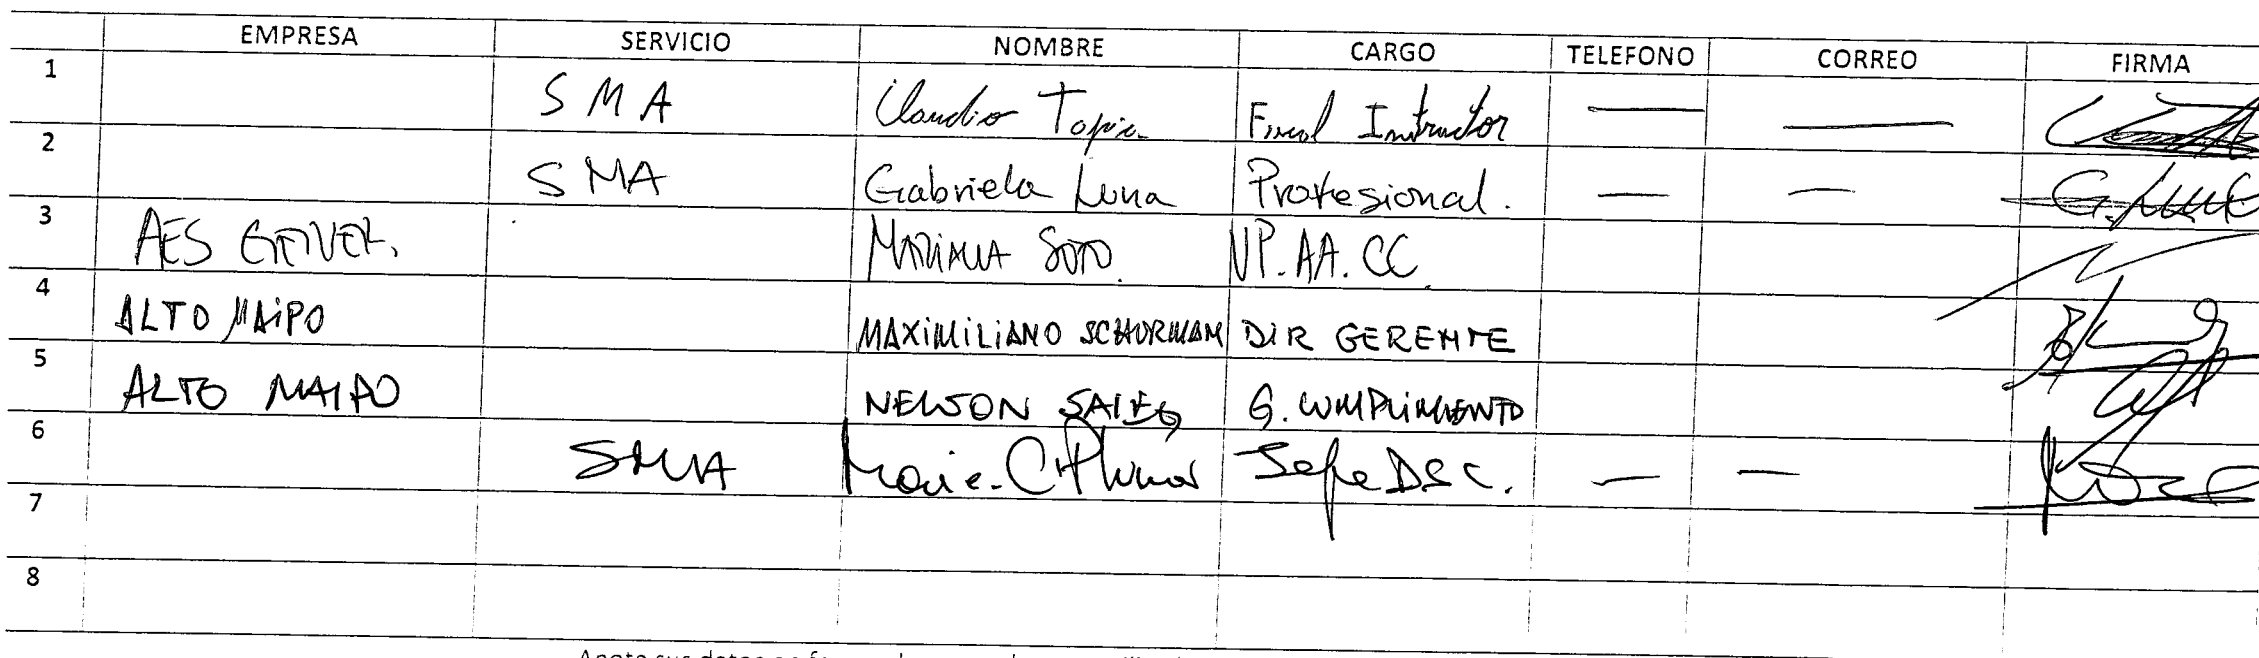 EMPRESA SERVICIO NOMBRE CARGO TELEFONO CORREO FIRMA
1 SMA Claudio Tapia Fiscal Instructor — —
2 SMA Gabriela Luna Profesional. — — G. Luna
3 AES GENER. SOTO. VP. AA. CC.
4 ALTO MAIPO MAXIMILIANO SCHURMAN DIR GERENTE
5 ALTO MAIPO NEWSON SAIEG G. CUMPLIMIENTO
6 SMA Marie Jefe DSC. — —
7
8